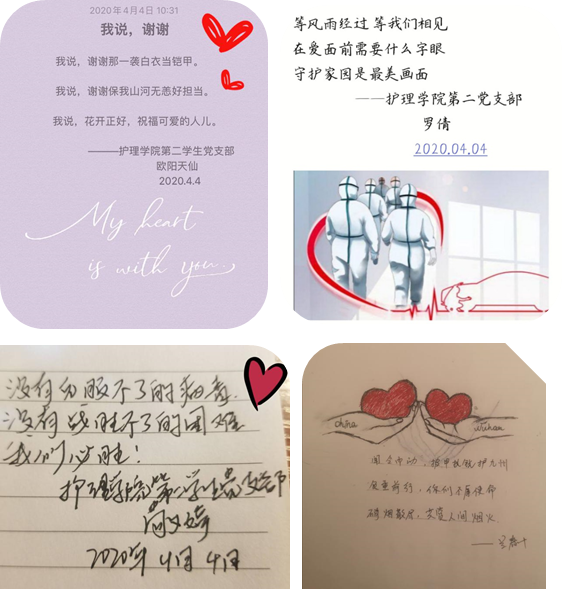 2020年4月4日 10:31
我说，谢谢
我说，谢谢那一袭白衣当铠甲。
我说，谢谢保我山河无恙好担当。
我说，花开正好，祝福可爱的人儿。
———护理学院第二学生党支部
欧阳天仙
2020.4.4
My heart
is with you
等风雨经过 等我们相见
在爱面前需要什么字眼
守护家园是最美画面
——护理学院第二党支部
罗倩
2020.04.04
没有分服不了的病毒
没有战胜不了的困难
我们必胜！
护理学院第二学生党支部
2020年4月4日
china
Wuhan
闻令而动，披甲执锐护九州
负重前行，你们不辱使命
硝烟散尽，共赏人间烟火